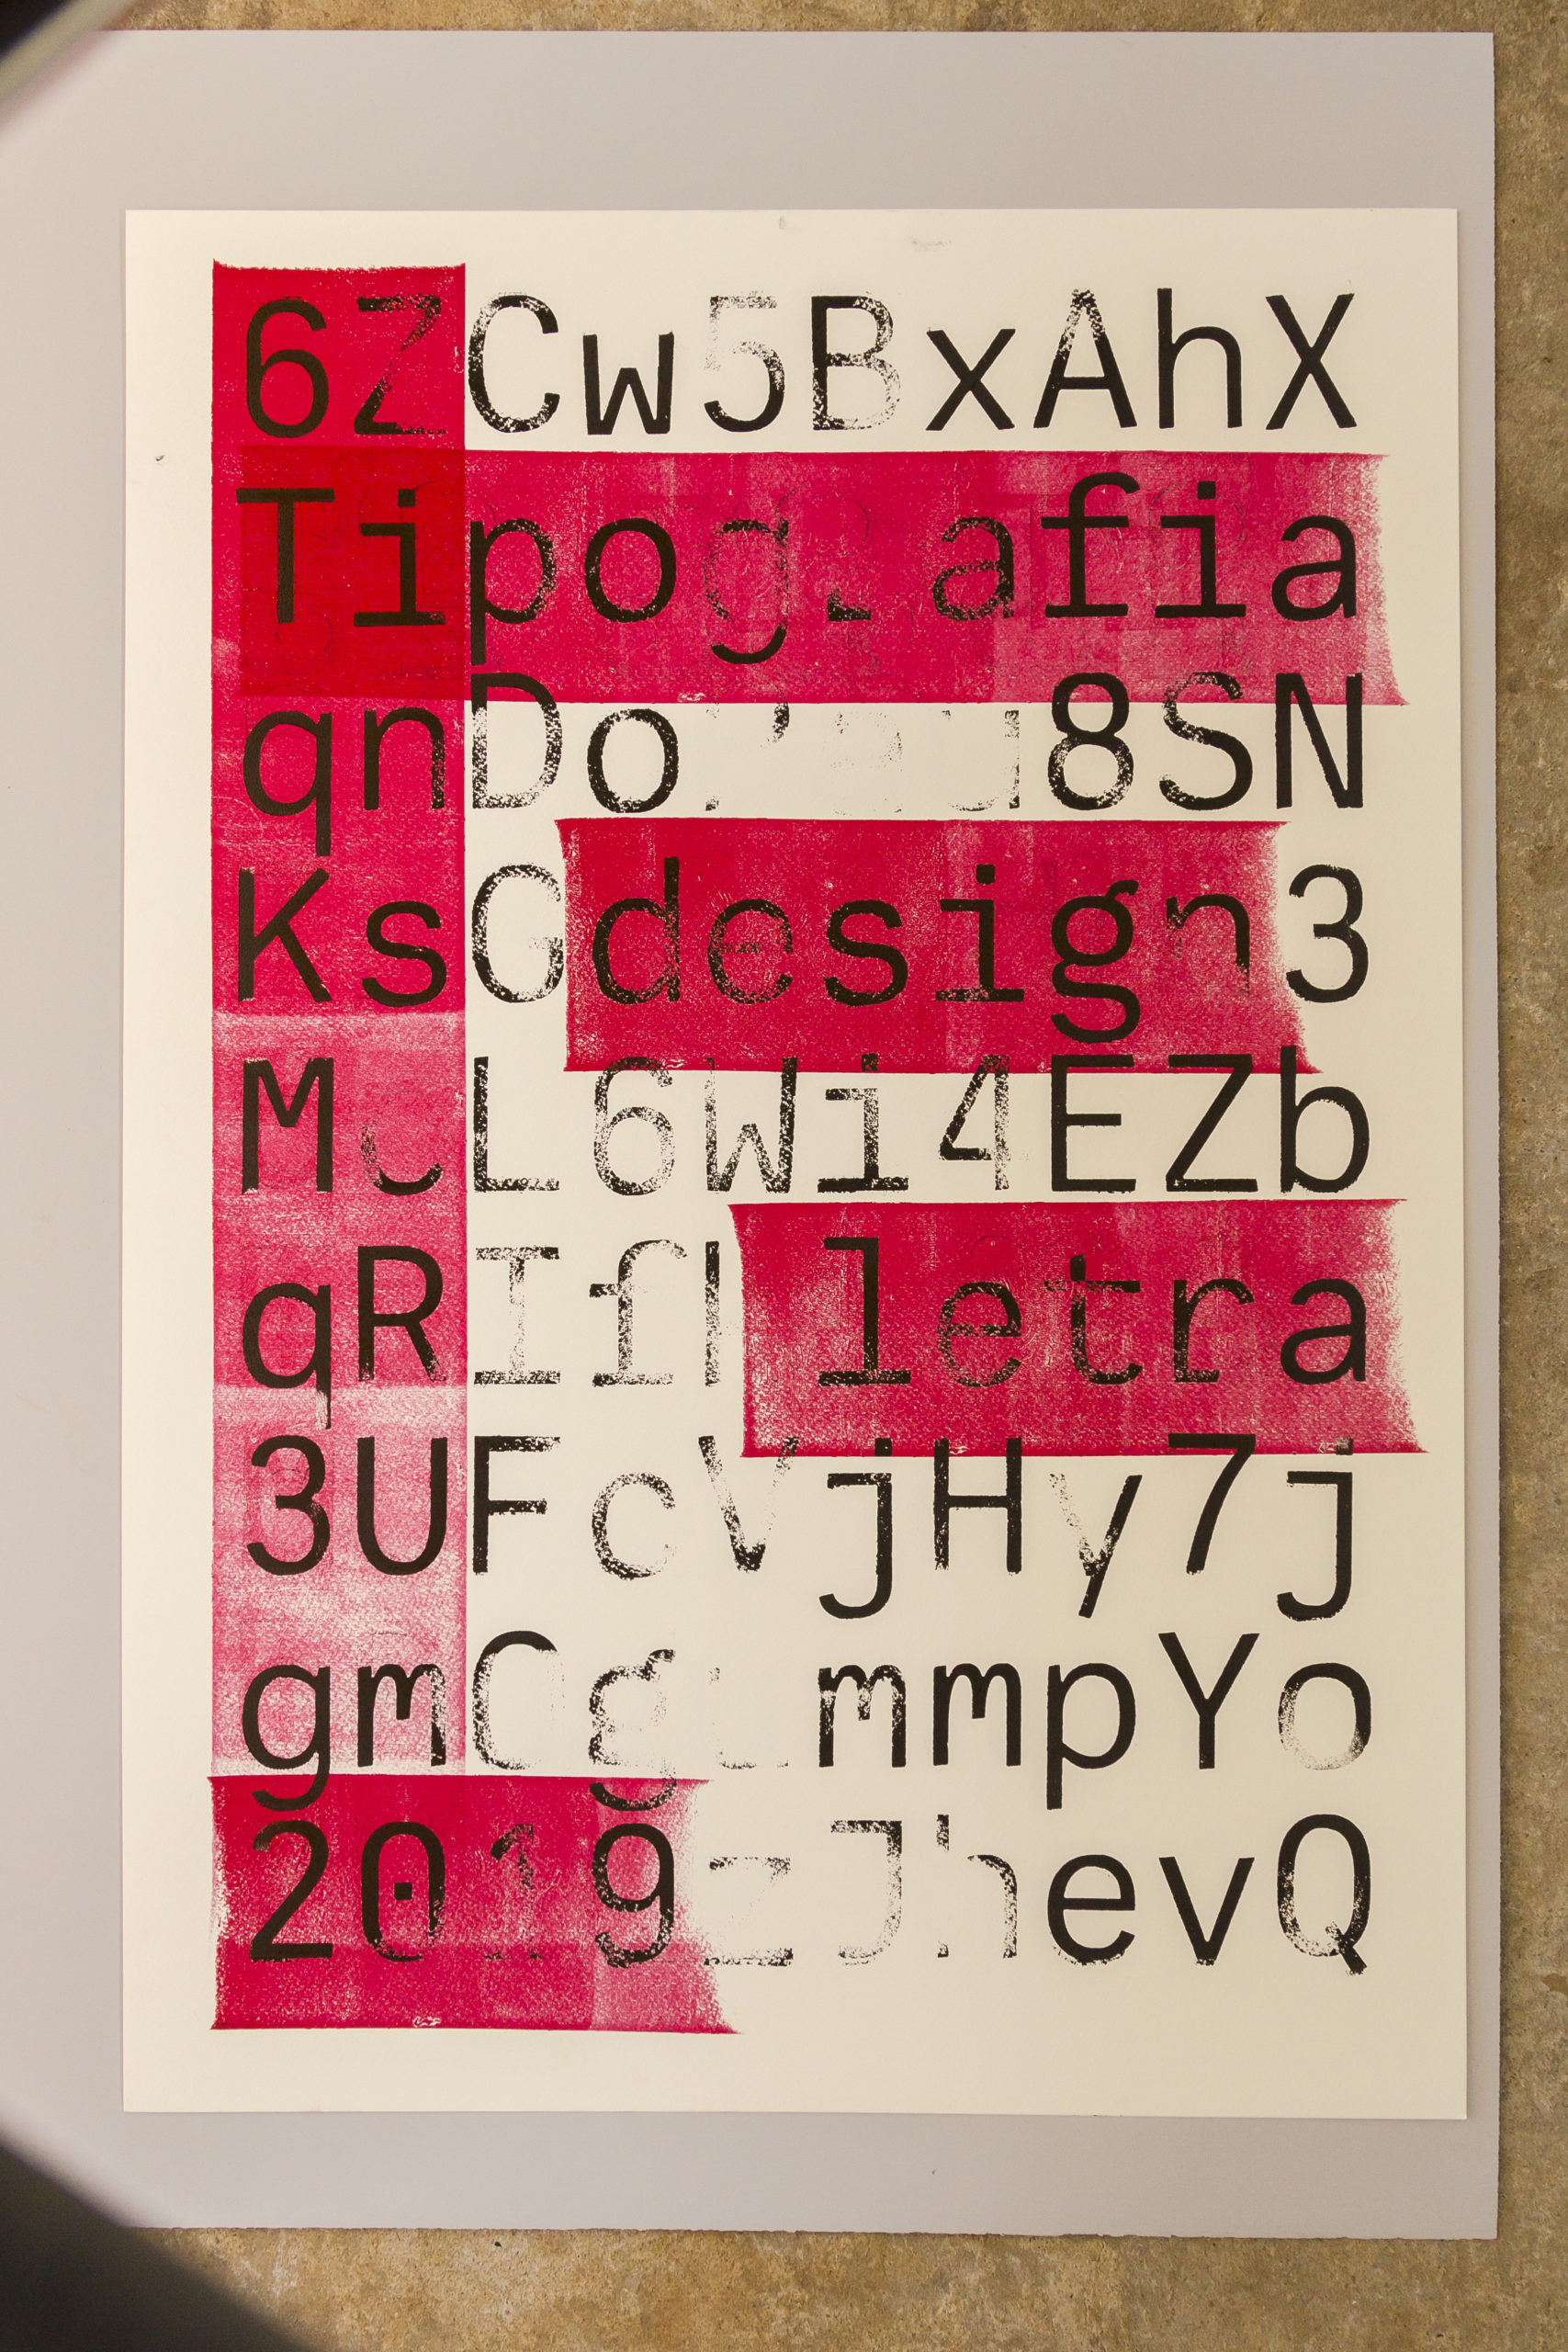 6ZCw5BxAhX
Tipografia
qnDo 8SN
KsGdesign3
M L6Wi4EZb
qRIf letra
3UFcVjHy7j
gmCg mmpYo
2019zJhevQ